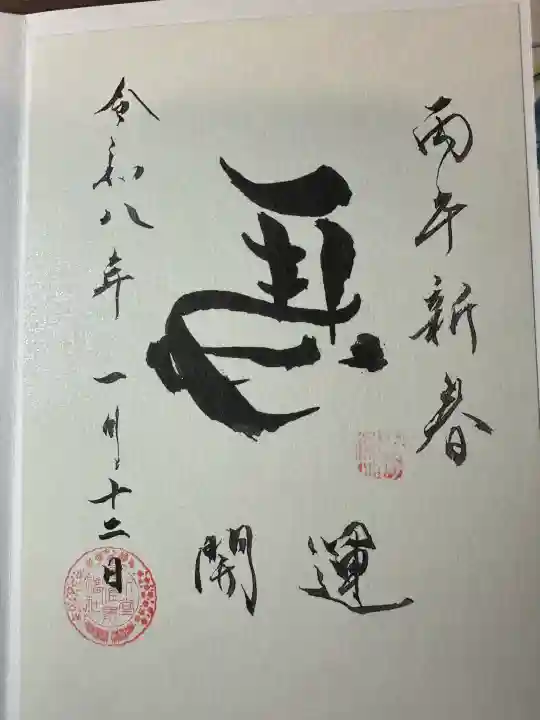 丙午新春
開運
令和八年一月十二日